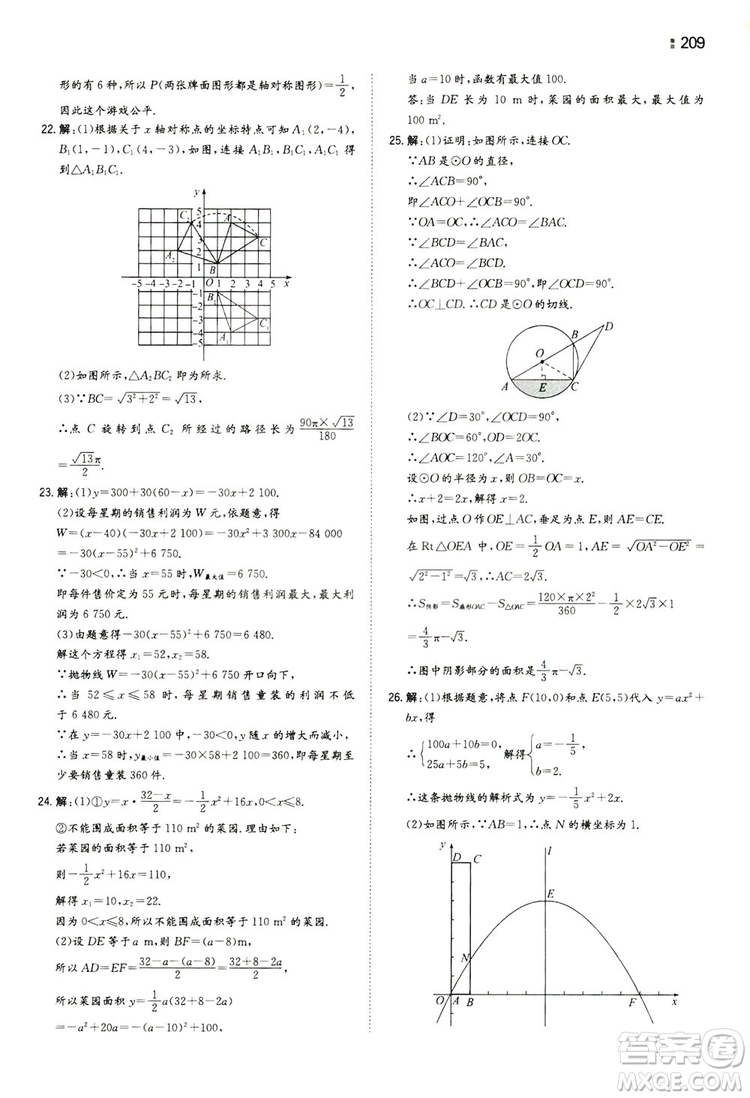 209
形的有 6 种，所以 P(两张牌面图形都是轴对称图形)=1/2，
因此这个游戏公平.
22.解：(1)根据关于 x 轴对称点的坐标特点可知 A₁(2，-4)，
B₁(1，-1)，C₁(4，-3)，如图，连接 A₁B₁，B₁C₁，A₁C₁得
到△A₁B₁C₁.
y
5
4
3
2
1
-5 -4 -3 -2 -1 O 1 2 3 4 5 x
-1
-2
-3
-4
-5
C₂ A C A₂ B B₁ C₁ A₁
(2)如图所示，△A₂BC₂ 即为所求.
(3)∵BC=√(3²+2²)=√13，
∴点 C 旋转到点 C₂ 所经过的路径长为 90π×√13/180
=√13π/2.
23.解：(1)y=300+30(60-x)=-30x+2 100.
(2)设每星期的销售利润为 W 元，依题意，得
W=(x-40)(-30x+2 100)=-30x²+3 300x-84 000
=-30(x-55)²+6 750.
∵-30<0，∴当 x=55 时，W最大值=6 750.
即每件售价定为 55 元时，每星期的销售利润最大，最大利
润为 6 750 元.
(3)由题意得-30(x-55)²+6 750=6 480.
解这个方程得 x₁=52，x₂=58.
∵抛物线 W=-30(x-55)²+6 750 开口向下，
∴当 52≤x≤58 时，每星期销售童装的利润不低于
6 480 元.
∵在 y=-30x+2 100 中，-30<0，y 随 x 的增大而减小，
∴当 x=58 时，y最小值=-30×58+2 100=360. 即每星期至
少要销售童装 360 件.
24.解：(1)①y=x·(32-x)/2=-1/2x²+16x，0<x≤8.
②不能围成面积等于 110 m² 的菜园. 理由如下：
若菜园的面积等于 110 m²，
则-1/2x²+16x=110，
解得 x₁=10，x₂=22.
因为 0<x≤8，所以不能围成面积等于 110 m² 的菜园.
(2)设 DE 等于 a m，则 BF=(a-8) m，
所以 AD=EF=(32-a-(a-8)+8... 
所以菜园面积 y=1/2a(32+8-2a)
=-a²+20a=-(a-10)²+100，
当 a=10 时，函数有最大值 100.
答：当 DE 长为 10 m 时，菜园的面积最大，最大值为
100 m².
25.解：(1)证明：如图所示，连接 OC.
∵AB 是⊙O 的直径，
∴∠ACB=90°，
即∠ACO+∠OCB=90°.
∵OA=OC，∴∠BAC=∠ACO.
∵∠BCD=∠BAC，
∴∠BCD=∠ACO.
∴∠BCD+∠OCB=90°.
∴OC⊥CD. ∴CD 是⊙O 的切线.
D B O A E C
(2)∵∠D=30°，∠OCD=90°，
∴∠BOC=60°，OD=2OC，
∴∠AOC=120°，∠BAC=30°.
设⊙O 的半径为 x，则 OB=OC=x，
∴x+2=2x，解得 x=2.
如图，过点 O 作 OE⊥AC，垂足为点 E，则 AE=CE.
在 Rt△OEA 中，OE=1/2OA=1，AE=√(OA²-OE²)=
√(2²-1²)=√3，∴AC=2√3.
∴S阴影=S扇形OAC-S△OAC=120×π×2²/360-1/2×2√3×1
=4/3π-√3，
∴图中阴影部分的面积是4/3π-√3.
26.解：(1)根据题意，将点 F(10，0)和点 E(5，5)代入 y=ax²+
bx，得
∴{100a+10b=0，25a+5b=5，解得{a=-1/5，b=2.
∴这条抛物线的解析式为 y=-1/5x²+2x.
(2)如图所示，∵AB=1，∴点 N 的横坐标为 1.
y l D C E N O A B F x
答案圈